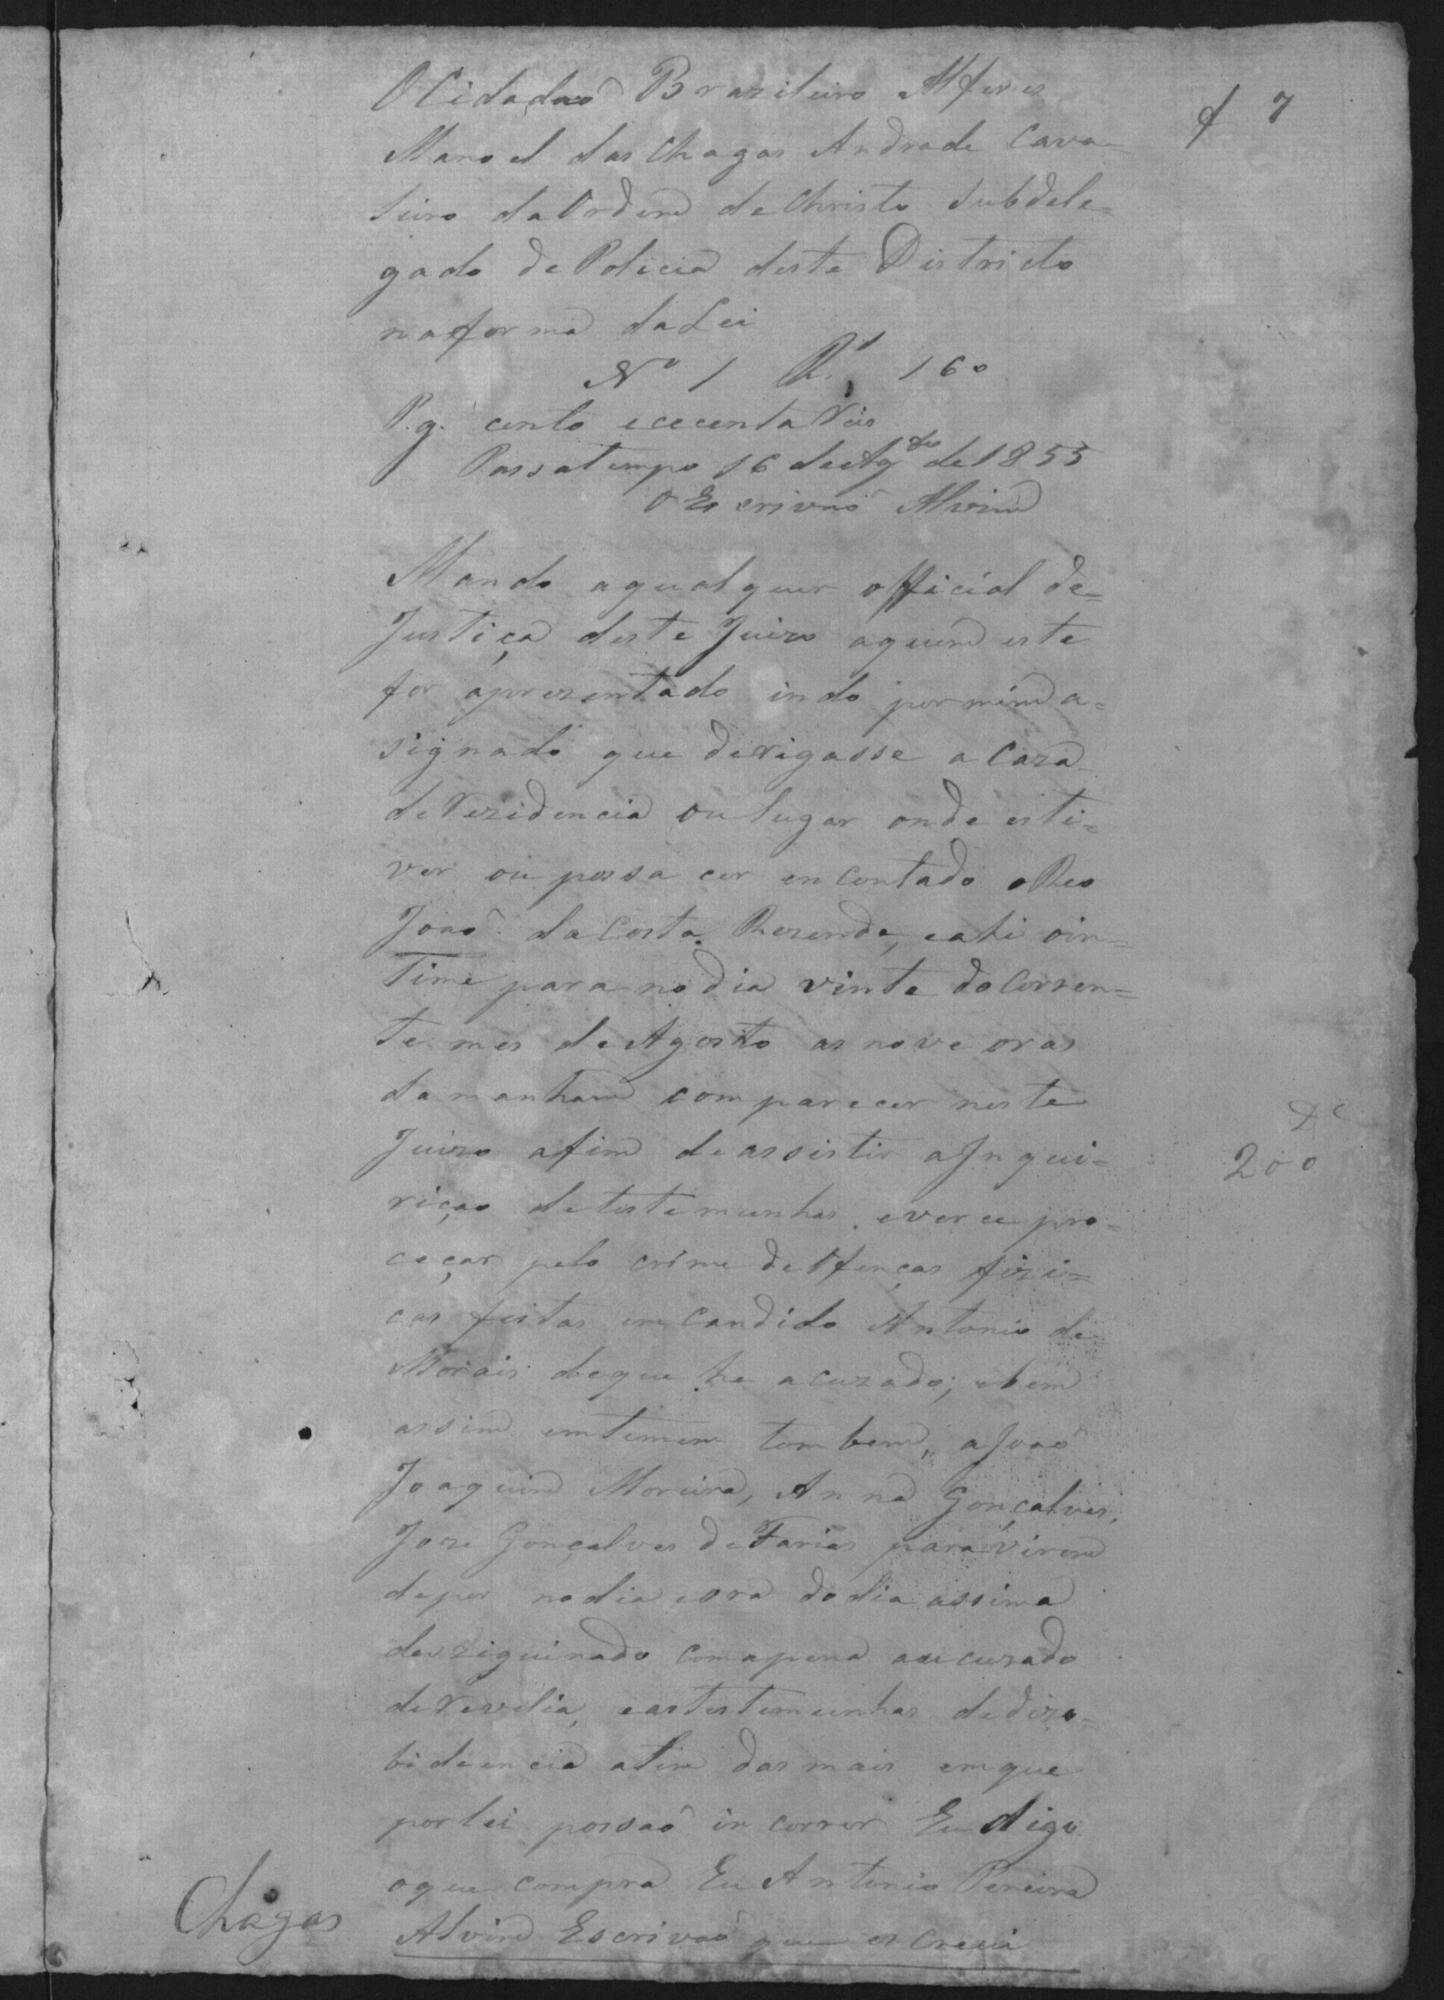 O Cidadaõ Brazileiro Alferes
f 7
Manoel das Chagas Andrade Cava-
leiro da Ordem de Christo Subdele=
gado de Policia deste Districto
na forma da Lei
Nº 1 Rs 160
P.g. cento e cecenta reis
Passatempo 16 de Agto de 1855
O Escrivaõ Alvim
Mando a qualquer official de=
Justiça deste Juizo a quem este
for aprezentado indo por mim a=
signado que derigasse a Caza
de rezidencia ou lugar onde esti=
ver ou possa cer encontado o Reo
Joaõ da Costa Rezende, e ahi o in=
time para no dia vinte do Corren=
te mes de Agosto as nove oras
da manham comparecer neste
Juizo afim de assistir a Inqui=
200
riçao de testemunhas, e ver ce pro=
ceçar pelo crime de Ofenças fizi=
cas feitas em Candido Antonio de
Morais de que he acuzado; e bem
assim emtemem tombem, a Joaõ
Joaquim Moreira, Anna Gonçalves,
Joze Gonçalves de Farias para virem
depor no dia e ora do dia assima
deziguinado com a pena ao acuzado
de revelia, e as testemunhas de dizo=
bidiencia alem das mais em que
por lei possaõ in correr Eu digo
o que compra Eu Antonio Pereira
Chagas
Alvim Escrivaõ que o escrevi